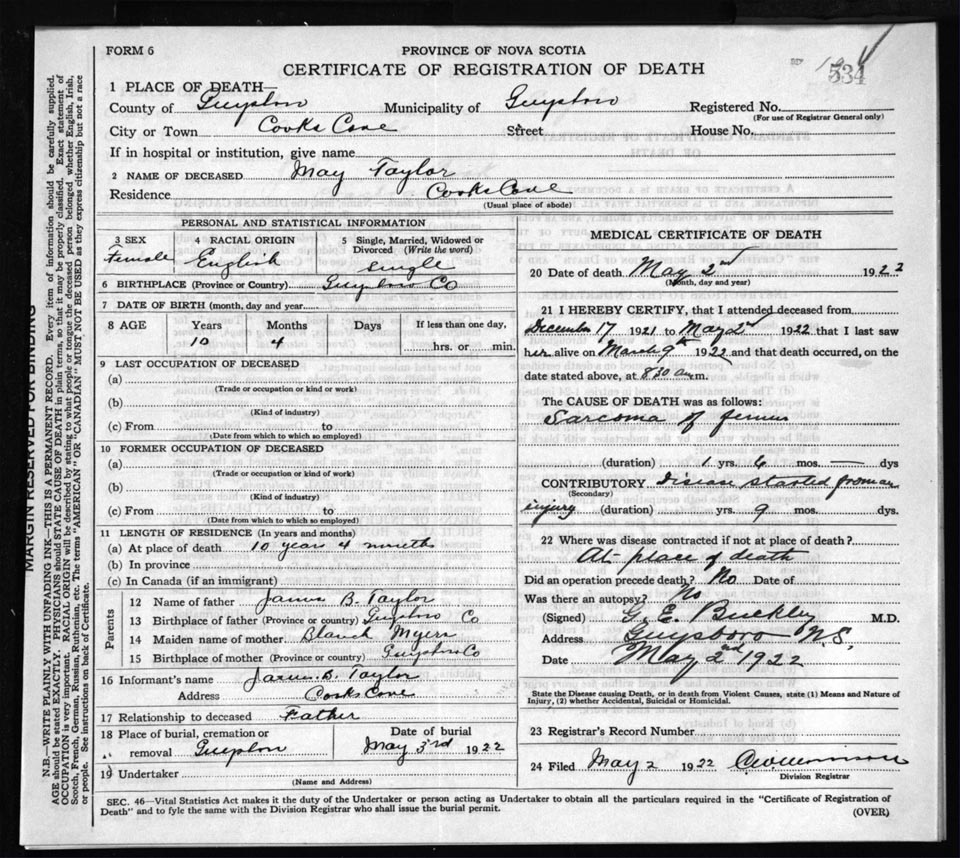 FORM 6
PROVINCE OF NOVA SCOTIA
534
CERTIFICATE OF REGISTRATION OF DEATH
1 PLACE OF DEATH—
County of Guysboro Municipality of Guysboro Registered No.
(For use of Registrar General only)
City or Town Cooks Cove Street House No.
If in hospital or institution, give name
2 NAME OF DECEASED May Taylor
Residence Cooks Cove
(Usual place of abode)
PERSONAL AND STATISTICAL INFORMATION
3 SEX 4 RACIAL ORIGIN 5 Single, Married, Widowed or Divorced (Write the word)
Female English single
6 BIRTHPLACE (Province or Country) Guysboro Co
7 DATE OF BIRTH (month, day and year)
8 AGE Years Months Days If less than one day,
10 4 hrs. or min.
9 LAST OCCUPATION OF DECEASED
(a)
(Trade or occupation or kind or work)
(b)
(Kind of industry)
(c) From to
(Date from which to which so employed)
10 FORMER OCCUPATION OF DECEASED
(a)
(Trade or occupation or kind of work)
(b)
(Kind of industry)
(c) From to
(Date from which to which so employed)
11 LENGTH OF RESIDENCE (In years and months)
(a) At place of death 10 years 4 months
(b) In province
(c) In Canada (if an immigrant)
Parents
12 Name of father James B. Taylor
13 Birthplace of father (Province or country) Guysboro Co
14 Maiden name of mother Blanch Myers
15 Birthplace of mother (Province or country) Guysboro Co
16 Informant's name James B. Taylor
Address Cooks Cove
17 Relationship to deceased Father
18 Place of burial, cremation or Date of burial
removal Guysboro May 3rd 1922
19 Undertaker
(Name and Address)
MEDICAL CERTIFICATE OF DEATH
20 Date of death May 2nd 1922
(Month, day and year)
21 I HEREBY CERTIFY, that I attended deceased from
December 17 1921 to May 2nd 1922 that I last saw
her alive on March 9th 1922 and that death occurred, on the
date stated above, at 8 30 a.m.
The CAUSE OF DEATH was as follows:
Sarcoma of femur
(duration) 1 yrs. 6 mos. — dys
CONTRIBUTORY Disease started from an
(Secondary)
injury (duration) yrs. 9 mos. dys.
22 Where was disease contracted if not at place of death?
At place of death
Did an operation precede death? No Date of
Was there an autopsy? No
(Signed) G. E. Buckley M.D.
Address Guysboro N.S.
Date May 2nd 1922
State the Disease causing Death, or in death from Violent Causes, state (1) Means and Nature of
Injury, (2) whether Accidental, Suicidal or Homicidal.
23 Registrar's Record Number
24 Filed May 2 1922
Division Registrar
SEC. 46—Vital Statistics Act makes it the duty of the Undertaker or person acting as Undertaker to obtain all the particulars required in the "Certificate of Registration of
Death" and to fyle the same with the Division Registrar who shall issue the burial permit.
(OVER)
MARGIN RESERVED FOR BINDING
N.B.—WRITE PLAINLY WITH UNFADING INK—THIS IS A PERMANENT RECORD. Every item of information should be carefully supplied.
AGE should be stated EXACTLY. PHYSICIANS should STATE CAUSE OF DEATH in plain terms, so that it may be properly classified. Exact statement of
OCCUPATION is very important. RACIAL ORIGIN will be described by stating to what people or tongue the deceased person belonged whether English, Irish,
Scotch, French, German, Russian, Ruthenian, etc. The terms "AMERICAN" OR "CANADIAN" MUST NOT BE USED as they express citizenship but not a race
or people. See instructions on back of Certificate.